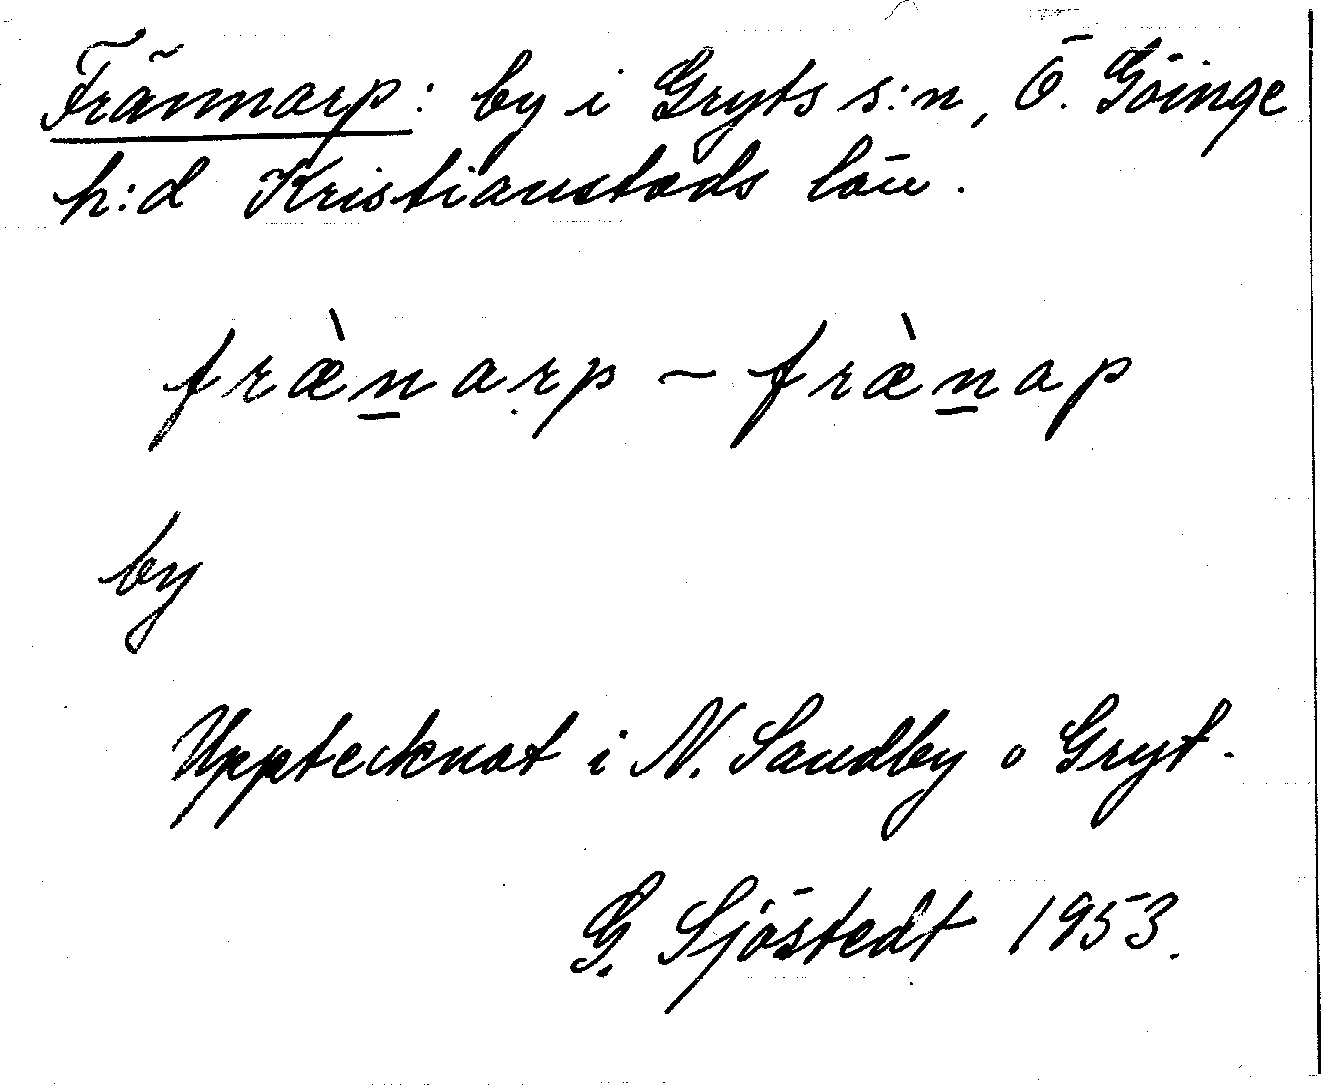 Frännarp: by i Gryts s:n, Ö. Göinge
h:d Kristianstads län.
fræ̀n̲arp ~ fræ̀n̲ap
by
Upptecknat i N. Sandby o Gryt.
G. Sjöstedt 1953.